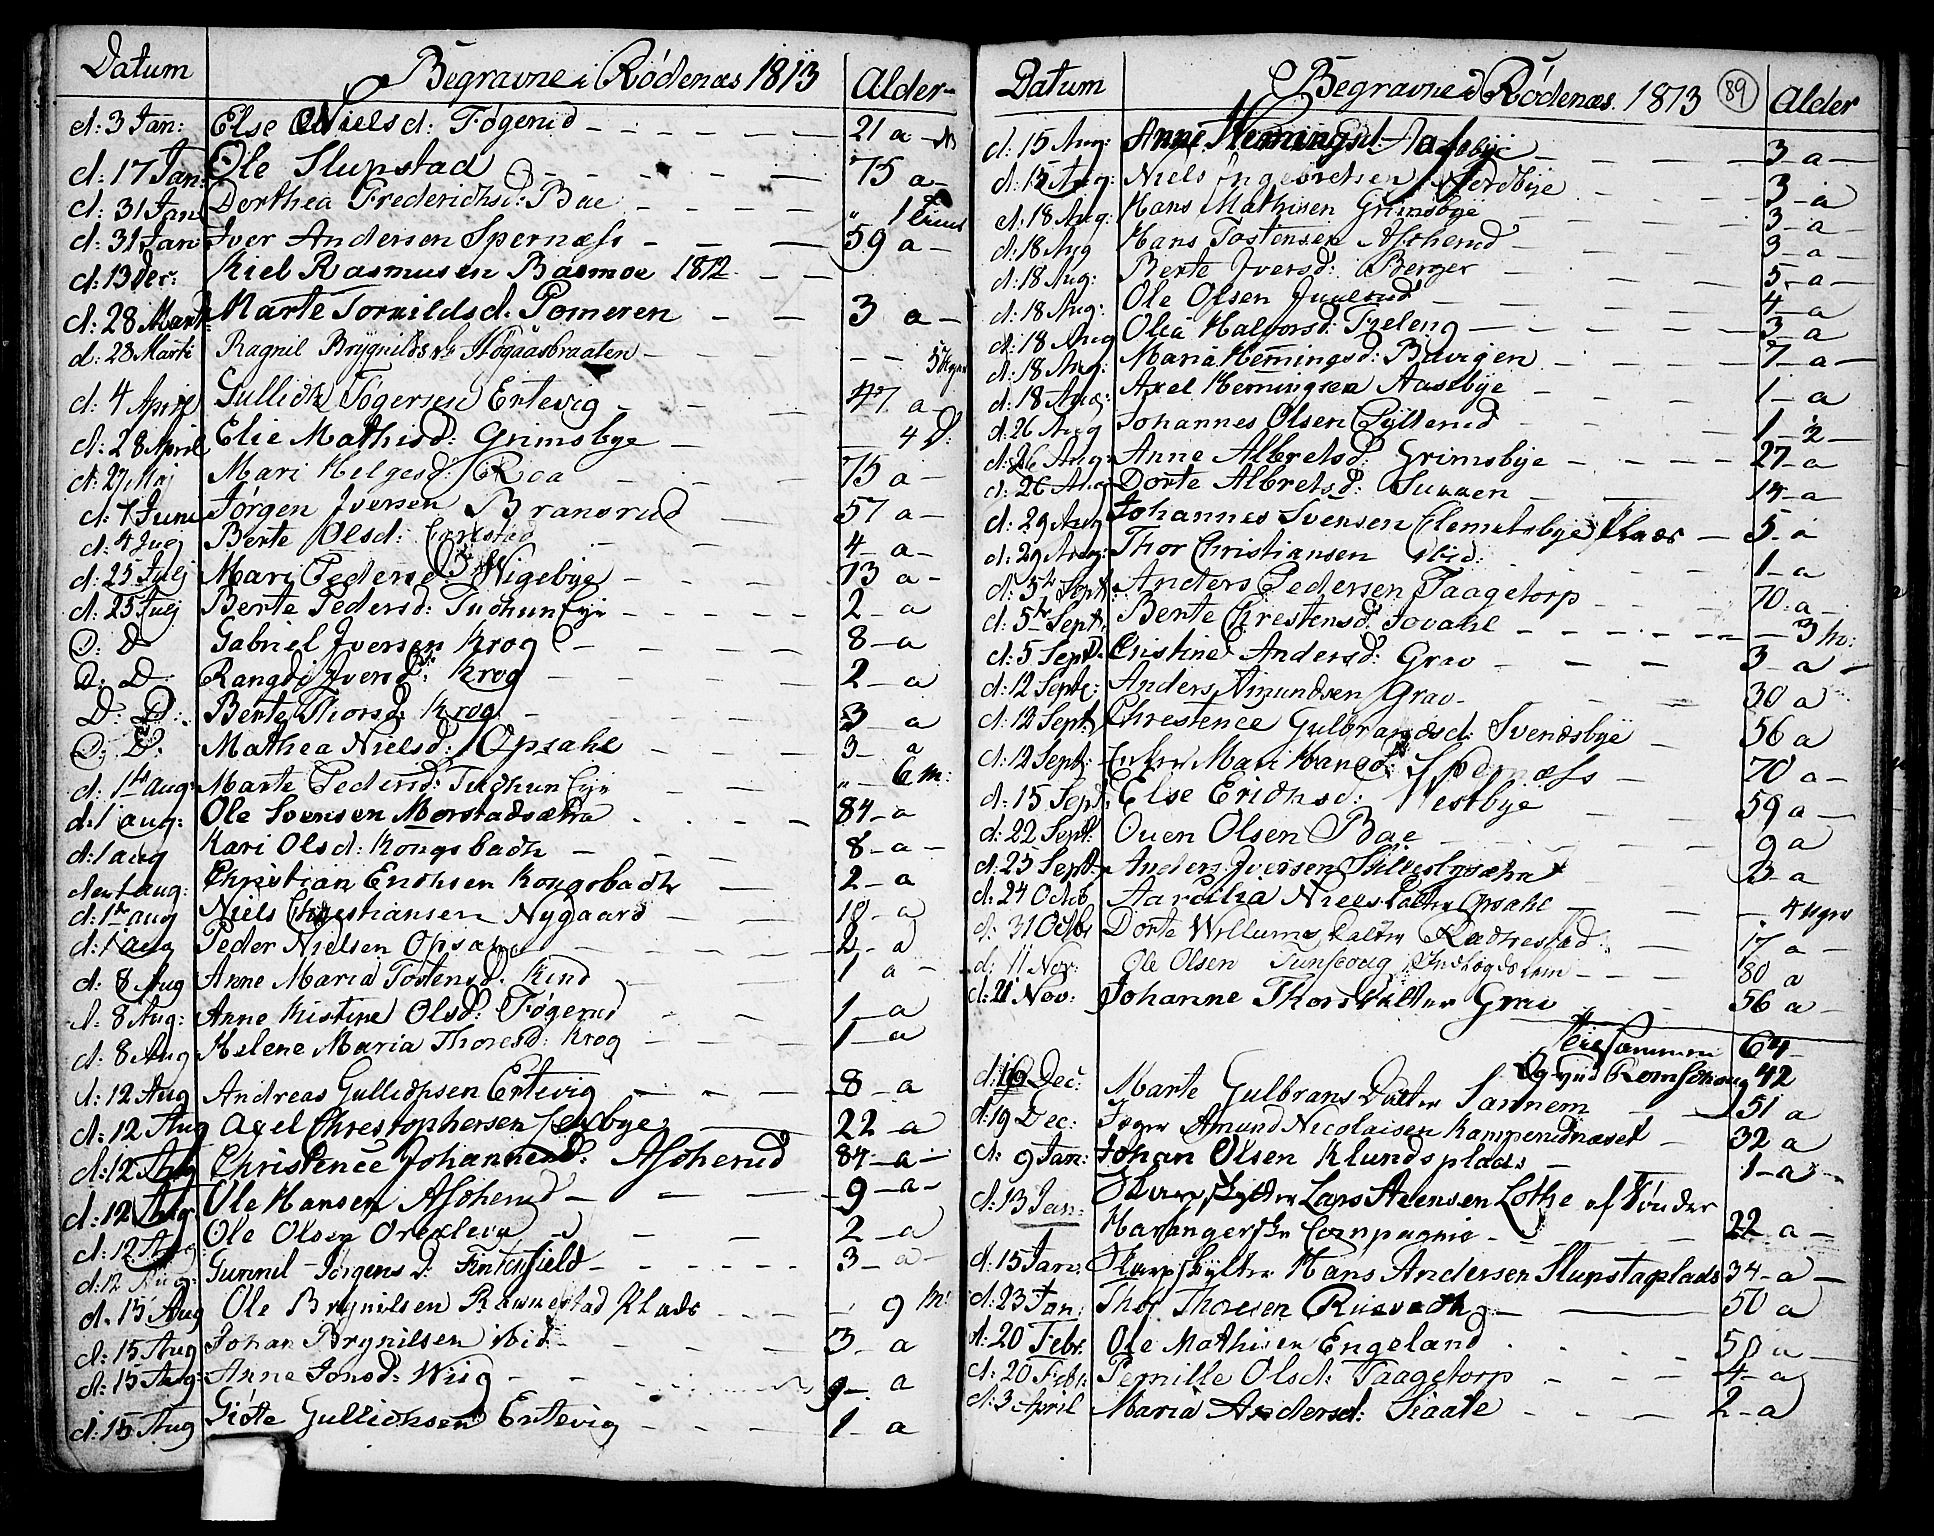 Datum Begravne i Rödenæs 1813 Alder
d: 3 Jan: Else Nielsd: Fögerud 21 a
d: 17 Jan: Ole Slupstad 75 a
d: 31 Jan Dorthea Frederichsd: Bae 1
d: 31 Jan Iver Andersen Spernæss 59 a
d: 13 Der: Kiel Rasmusen Basmoe 1812
d: 28 Mart: Marte Torkildsd. Pomeren 3 a
d: 28 Marti Ragnil Brygnildsd: Högaasbraaten 5 Uger
d: 4 April Gullich Tögersen Ertevig 47 a
d: 28 April Elie Mathisd: Grimsbye 4 D:
d: 27 Maj Mari Helgesd: Roa 75 a
d: 7 Juni Jörgen Iversen Bransrud 57 a
d: 4 Juej Berte Olsd: 4 a
d: 25 Julj Mari Pedersd: Wigebye 73 a
d: 25 Juej Berte Pedersd: 2 a
D: D Gabriel Iversen Krog 8 a
D: D: Rangdi Iversd: Krog 2 a
D: D: Berte Thorsd: Krog 3 a
D: D: Mathea Nielsd: Opsahl 3 a
d: 1te aug: Marte Pedersd: 6 m:
d: 1 aug: Ole Svensen Morstadsætra 84 a
d: 1 aug Kari Olsd: Kongsbach 8 a
den 1 aug: Christian Erichsen Kongsbach 2 a
d: 1te aug Niels Christiansen Nygaard 18 a
d: 1 aug Peder Nielsen Opsa 2 a
d: 8 Aug Anne Maria Tostensd. Kind 1 a
d: 8 Aug: Anne Kistine Olsd: Fögerud 1 a
d: 8 Aug Helene Maria Thoresd: Krog 1 a
d: 12 Aug Andreas Gullichsen Ertevig 8 a
d: 12 Aug Axel Christophersen 22 a
d: 12 Aug Christence Johannesd: Ascherud 84 a
d: 12 Aug Ole Hansen Ascherud 9 a
d: 12 Aug: Ole Olsen 2 a
d: 12 Aug: Gunnil Jörgensd: 3 a
d. 15 Aug Ole Brynilsen Plads 9 M:
d: 15 Aug Johan Brynilsen ibid 3 a
d: 15 Aug: Anne Jonsd: Wiig 9 a
d: 15 Aug Giöte Gullichsen Ertevig 1 a
Datum Begravne i Rödenæs 1813 89 Alder
d: 15 Aug: Anne Hemingsd: Aasebye 3 a
d: 15 Aug: Niels Ingebretsen Nordbye 3 a
d: 18 Aug: Hans Mathisen Grimsbye 3 a
d: 18 Aug Hans Tostensen Ascherud 3 a
d: 18 Aug: Berte Iversd: Berger 5 a
d: 18 Aug: Ole Olsen Juulsrud 4 a
d: 18 Aug Olia Halvorsd: Treleng 3 a
d: 18 Aug: Maria Hemingsd: Bævigen 7 a
d: 18 Aug: Axel Hemingsen Aasebye 1 a
d: 26 Aug Johannes Olsen Lytterud 1 2
d: 26 Aug: Anne Albretsd: Grimsbye 27 a
d: 26 Aug Dorte Albretsd: 14 a
d: 29 Aug Johannes Svensen Clemetsbye Plads 5 a
d: 29 Aug: Thor Christiansen ibid: 1 a
d: 5te Sept: Anders Pedersen Taagetorp 70 a
d: 5te Sept: Berte Christensd: Jovahl 3 Uv:
d: 5 Sept: Cristine Andersd: Grav 3 a
d: 12 Septe: Anders Amundsen Grav 30 a
d: 12 Sept: Chrestence Gulbrandsd: Svendsbye 56 a
d: 12 Sept: Enken Mari Hansd: Spernæss 70 a
d: 15 Sept: Else Erichsd: Westbye 59 a
d: 22 Sept: Ouen Olsen Bae 9 a
d: 23 Sept: Anders Iversen 3 a
d: 24 Octob Niels Datter Opsahl 4 Uger
d: 31 Octbr Dorte Willums Datter 17 a
d: 11 Nov: Ole Olsen 80 a
d: 21 Nov: Johanne Thors Datter Grav 56 a
Tilsammen 64
Og ved Romschoug 42
d: 19 Dec: Marte Gulbrans Datter Sannem 51 a
d: 19 Dec: Jæger Amund Nicolaisen Kampenidnæset 32 a
d: 9 Jan: Johan Olsen Klundsplads 1 a
d: 13 Jan: Skarpskytter Lars Steensen Lothe af Tönder
Harangerske Compagnie 22 a
d: 15 Jan: Skarpskytter Hans Andersen Slupstaplads 34 a
d: 23 Jan: Thor Thoresen 50 a
d: 20 Febr. Ole Mathisen Engeland 50 a
d: 20 Febr. Pernille Olsd: Taagetorp 4 a
d: 3 April Maria Andersd: Kaate 2 a